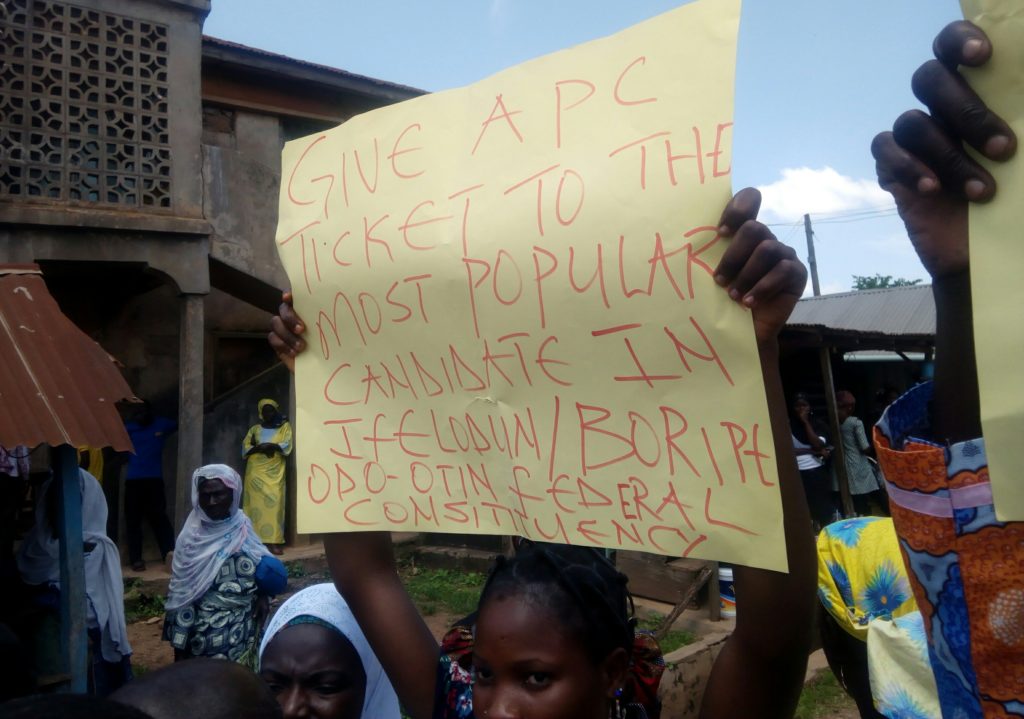 GIVE APC
TICKET TO THE
MOST POPULAR
CANDIDATE IN
IFELODUN/BORIPE
ODO-OTIN FEDERAL
CONSITUENCY